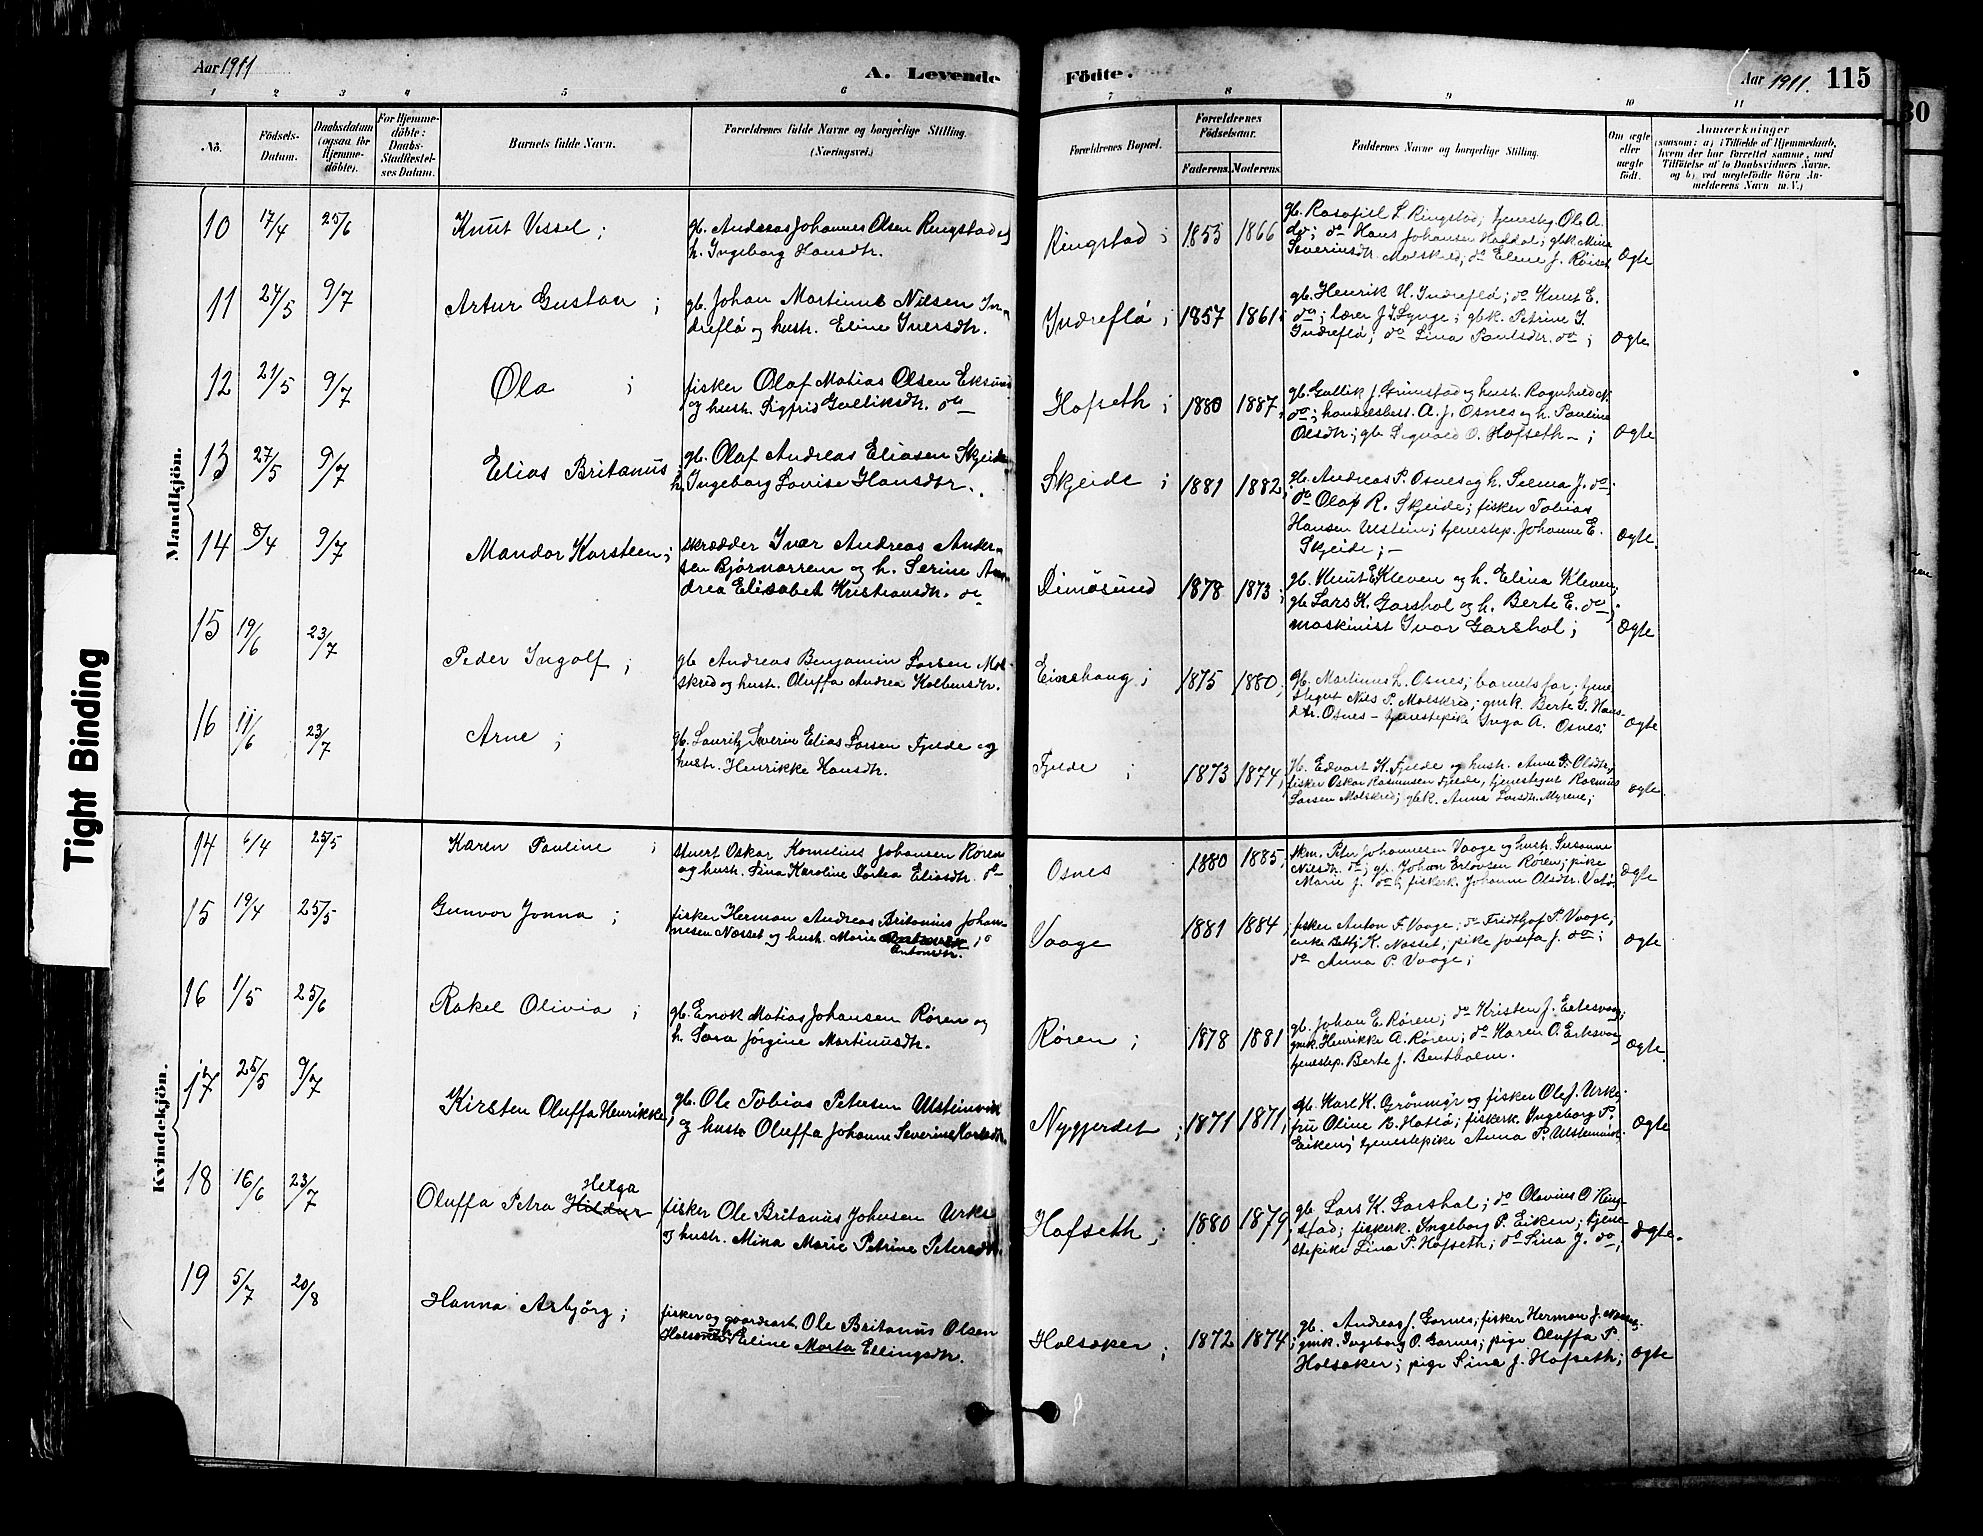 Aar 1911
A. Levende
Födte.
Aar 1911. 115
30
1 2 3 4 5 6 7 8 9 10 11
No.
Födsels-
Datum.
Daabsdatum
(ogsaa for
Hjemme-
döbte).
For Hjemme-
döbte:
Daabs-
Stadfæstel-
ses Datum.
Barnets fulde Navn.
Forældrenes fulde Navne og borgerlige Stilling.
(Næringsvei.)
Forældrenes Bopæl.
Forældrenes
Födselsaar.
Faderens. Moderens.
Faddernes Navne og borgerlige Stilling.
Om ægte
eller
uægte
födt.
Anmærkninger
(saasom: a) i Tilfælde af Hjemmedaab,
hvem der har forrettet samme, med
Tilföielse af to Daabsvidners Navne,
og b) ved uægtefödte Börn An-
melderens Navn m. V.)
Mandkjön.
10 17/4 25/6 Knut Vessel;
gb. Andreas Johannes Olsen Ringstad og
h. Ingeborg Hansdtr.
Ringstad; 1853 1866
gb. Rasafiel L. Ringstad; tjenestg. Ole A.
do; do Hans Johansen Haddal; gbk. Mina
Severinsdtr. Molskred; do Eline J. Röiset
Ægte
11 24/5 9/7 Artur Gustav;
gb. Johan Martinus Nilsen In-
dreflö og hustr. Eline Iversdtr.
Indreflö; 1857 1861;
gb. Henrik U. Indreflö; do Knut E.
do; lærer J. I. Lynge; gbk. Petrine I.
Indreflö; do Lina Paulsdtr. do;
Ægte
12 21/5 9/7 Ola;
fisker Olaf Matias Olsen Eksund
og hustr. Sigfrid Galliksdtr. do
Hofseth; 1880 1887,
gb. Gullik J. Grimstad og hustr. Ragnhild N.
do; handelsbest. A. J. Osnes og h. Pauline
Olsdtr; gb. Sigvald O. Hofseth -;
Ægte
13 27/5 9/7 Elias Britanus;
gb. Olaf Andreas Eliasen Skjeide
h. Ingeborg Lovise Hansdtr.
Skjeide; 1881 1882;
gb. Andreas P. Osnes og h. Selma J. do;
do Olaf R. Skjeide; fisker Tobias
Hansen Ulstein; tjenestep. Johanne E.
Skjeide; -
Ægte.
14 8/4 9/7 Mandor Karsteen;
skrædder Ivar Andreas Ander-
sen Bjørnarrem og h. Serine An-
drea Elisabet Kristiansdtr. do
Dimøsund 1878 1873;
gb. Knut E. Kleven og h. Elina Kleven;
gb. Lars K. Garshol og h. Berte E. do;
maskinist Ivar Garshol;
Ægte
15 19/6 23/7 Peder Ingolf;
gb. Andreas Benjamin Larsen Mol-
skred og hustr. Oluffa Andrea Kolbensdtr.
Eineshaug; 1875 1880;
gb. Martinus L. Osnes; barnets far; tjene-
stegut Nils P. Molskred; gmk. Berte G. Hans-
dtr. Osnes - tjenestepike Inga A. Osnes;
Ægte
16 11/6 23/7 Arne;
gb. Lauritz Severin Elias Larsen Fjelde og
hustr. Henrikke Hansdtr.
Fjelde; 1873 1874;
gb. Edvart K. Fjelde og hustr. Anne G. Olsdtr,
fisker Oskar Rasmussen Fjelde, tjenestegut Rasmus
Larsen Molskred; gbk. Anna Larsdtr. Myrene;
Ægte.
Kvindekjön.
14 6/4 25/5 Karen Pauline;
stuert Oskar Kornelius Johansen Røren
og hustr. Lina Karoline Dortea Eliasdtr. do
Osnes 1880 1885;
skm. Peter Johannesen Vaage og hustr. Susanne
Nilsdtr. do; gb. Johan Erlovsen Røren; pike
Marie J. do; fiskerk. Johanne Olsdtr. Vatö.
Ægte
15 19/4 25/5 Gunvor Jonna;
fisker Herman Andreas Britanius Johan-
nesen Næsset og hustr. Marie
Antonsdtr. do
Vaage 1881 1884;
fisker Anton F. Vaage; do Fridthjof P. Vaage;
enke Betty K. Næsset; pike Josefa J. do;
do Anna P. Vaage;
Ægte
16 1/5 25/6 Rakel Olivia;
gb. Enok Matias Johansen Røren og
h. Sara Jørgine Martinusdtr.
Røren; 1878 1881
gb. Johan E. Røren; do Kristen J. Eilesvaag;
gmk. Henrikke A. Røren; do Karen O. Eilesvaag
tjenestep. Berte J. Bentholm.
Ægte.
17 25/5 9/7 Kirsten Oluffa Henrikke;
gb. Ole Tobias Petersen Ulsteinvik
og hustr. Oluffa Johanne Severine Karlsdtr.
Nygjerdet; 1871 1871;
gb. Karl K. Grönmyr og fisker Ole J. Urke
fru Oline B. Hatlö; fiskerk. Ingeborg P.
Eiken; tjenestepike Anna P. Ulsteinvik;
Ægte
18 16/6 23/7 Oluffa Petra Hildur Helga
fisker Ole Britanus Johnsen Urke
og hustr. Mina Marie Petrine Petersdtr.
Hofseth; 1880 1879;
gb. Lars K. Garshol; do Olavius O. Ring-
stad; fiskerk. Ingeborg P. Eiken; tjene-
stepike Lina P. Hofseth; do Lina J. do;
Ægte.
19 5/7 20/8 Hanna Asbjörg;
fisker og gaardeart. Ole Britanus Olsen
Eline Marta Ellingsdtr.
Holsaker; 1872 1874;
gb. Andreas J. Garnes; fisker Herman J. Næsset;
gmk. Ingeborg O. Garnes; pige Oluffa P.
Holsaker; pige Lina J. Hofseth;
Ægte
Tight Binding